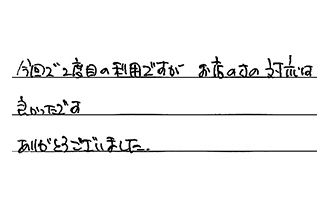 今回で2度目の利用ですが お店の方の対応は
良かったです
ありがとうございました.